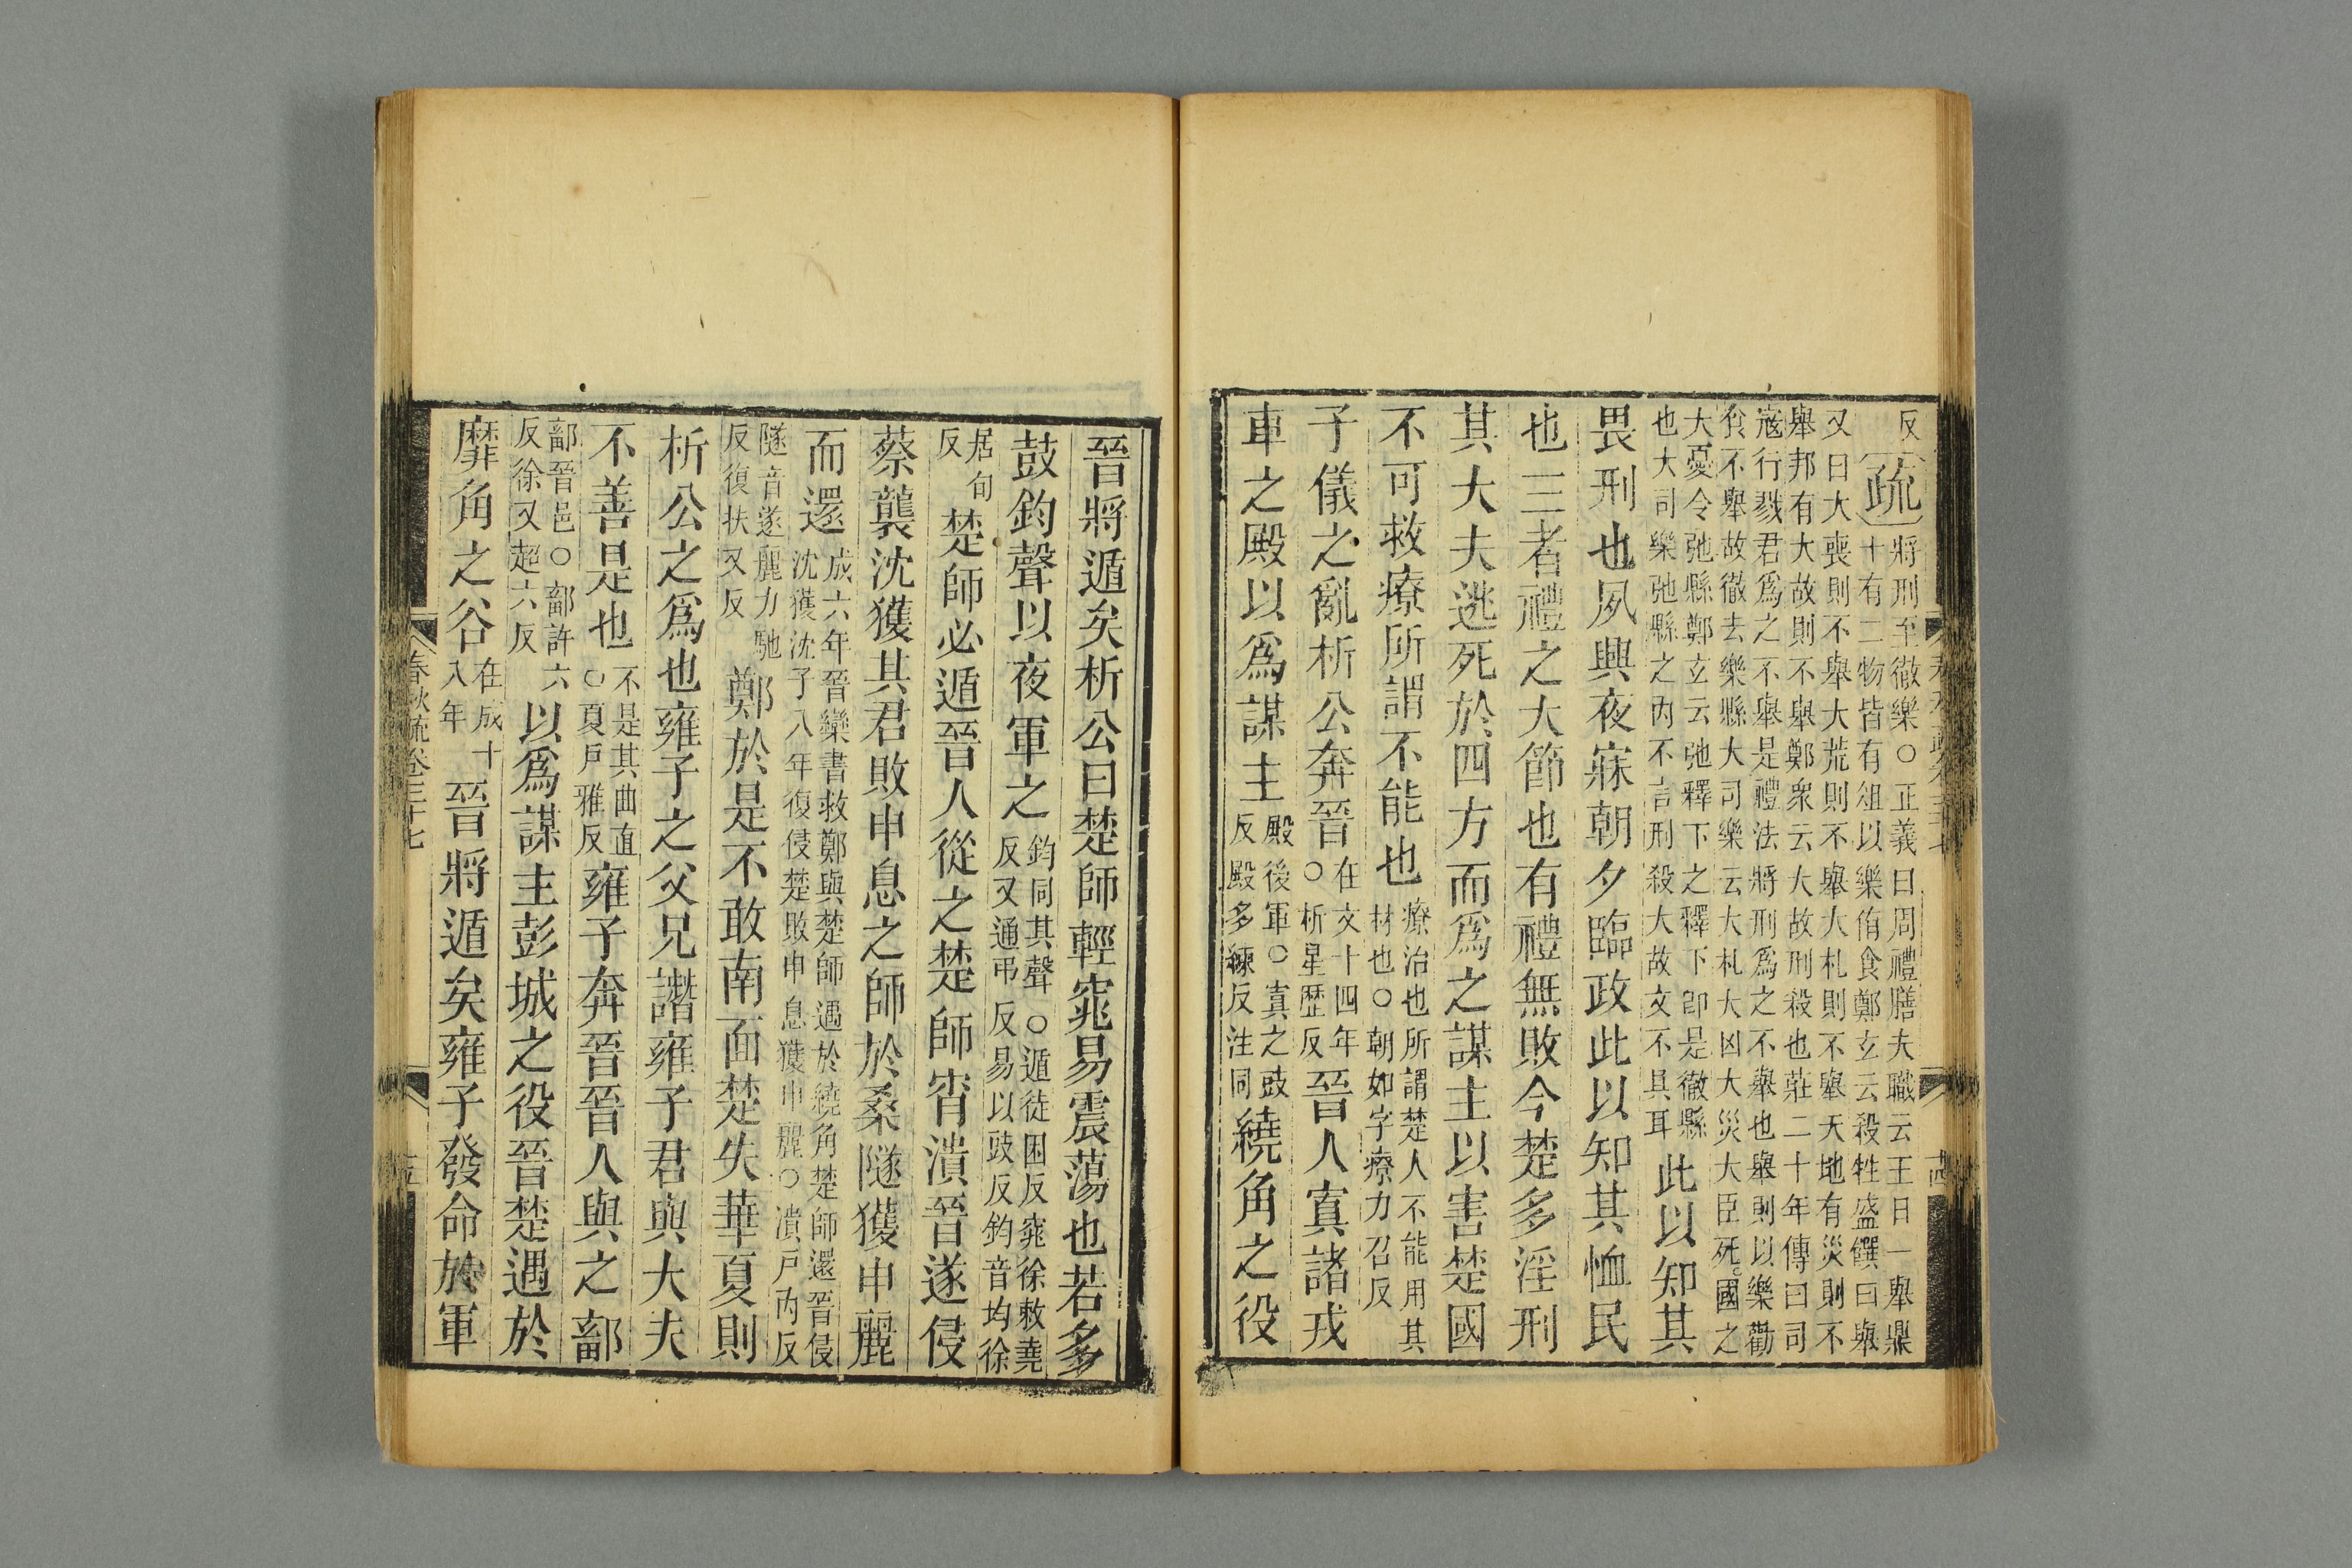 反疏將刑至徹樂○正義曰周禮膳夫職云王日一舉鼎
十有二物皆有俎以樂侑食鄭玄云殺牲盛饌曰舉
又曰大喪則不舉大荒則不舉大札則不舉天地有災則不
舉邦有大故則不舉鄭衆云大故刑殺也莊二十年傳曰司
寇行戮君爲之不舉是禮法將刑爲之不舉也舉則以樂勸
食不舉故徹去樂縣大司樂云大札大凶大災大臣死國之
大憂令弛縣鄭玄云弛釋下之釋下卽是徹縣
也大司樂弛縣之內不言刑殺大故文不具耳此以知其
畏刑也夙興夜寐朝夕臨政此以知其恤民
也三者禮之大節也有禮無敗今楚多淫刑
其大夫逃死於四方而爲之謀主以害楚國
不可救療所謂不能也療治也所謂楚人不能用其材也○朝如字療力召反
子儀之亂析公奔晉在文十四年○析星歷反晉人寘諸戎
車之殿以爲謀主殿後軍○寘之豉反殿多練反注同繞角之役
晉將遁矣析公曰楚師輕窕易震蕩也若多
鼓鈞聲以夜軍之鈞同其聲○遁徒困反窕徐敕堯反又通弔反易以豉反鈞音均徐
居旬反楚師必遁晉人從之楚師宵潰晉遂侵
蔡襲沈獲其君敗申息之師於桑隧獲申麗
而還成六年晉欒書救鄭與楚師遇於繞角楚師還晉侵沈獲沈子八年復侵楚敗申息獲申麗○潰戶內反
隧音遂麗力馳反復扶又反鄭於是不敢南面楚失華夏則
析公之爲也雍子之父兄譖雍子君與大夫
不善是也不是其曲直○夏戶雅反雍子奔晉晉人與之鄐
鄐晉邑○鄐許六反徐又超六反以爲謀主彭城之役晉楚遇於
靡角之谷在成十八年晉將遁矣雍子發命於軍
春秋疏卷三十七